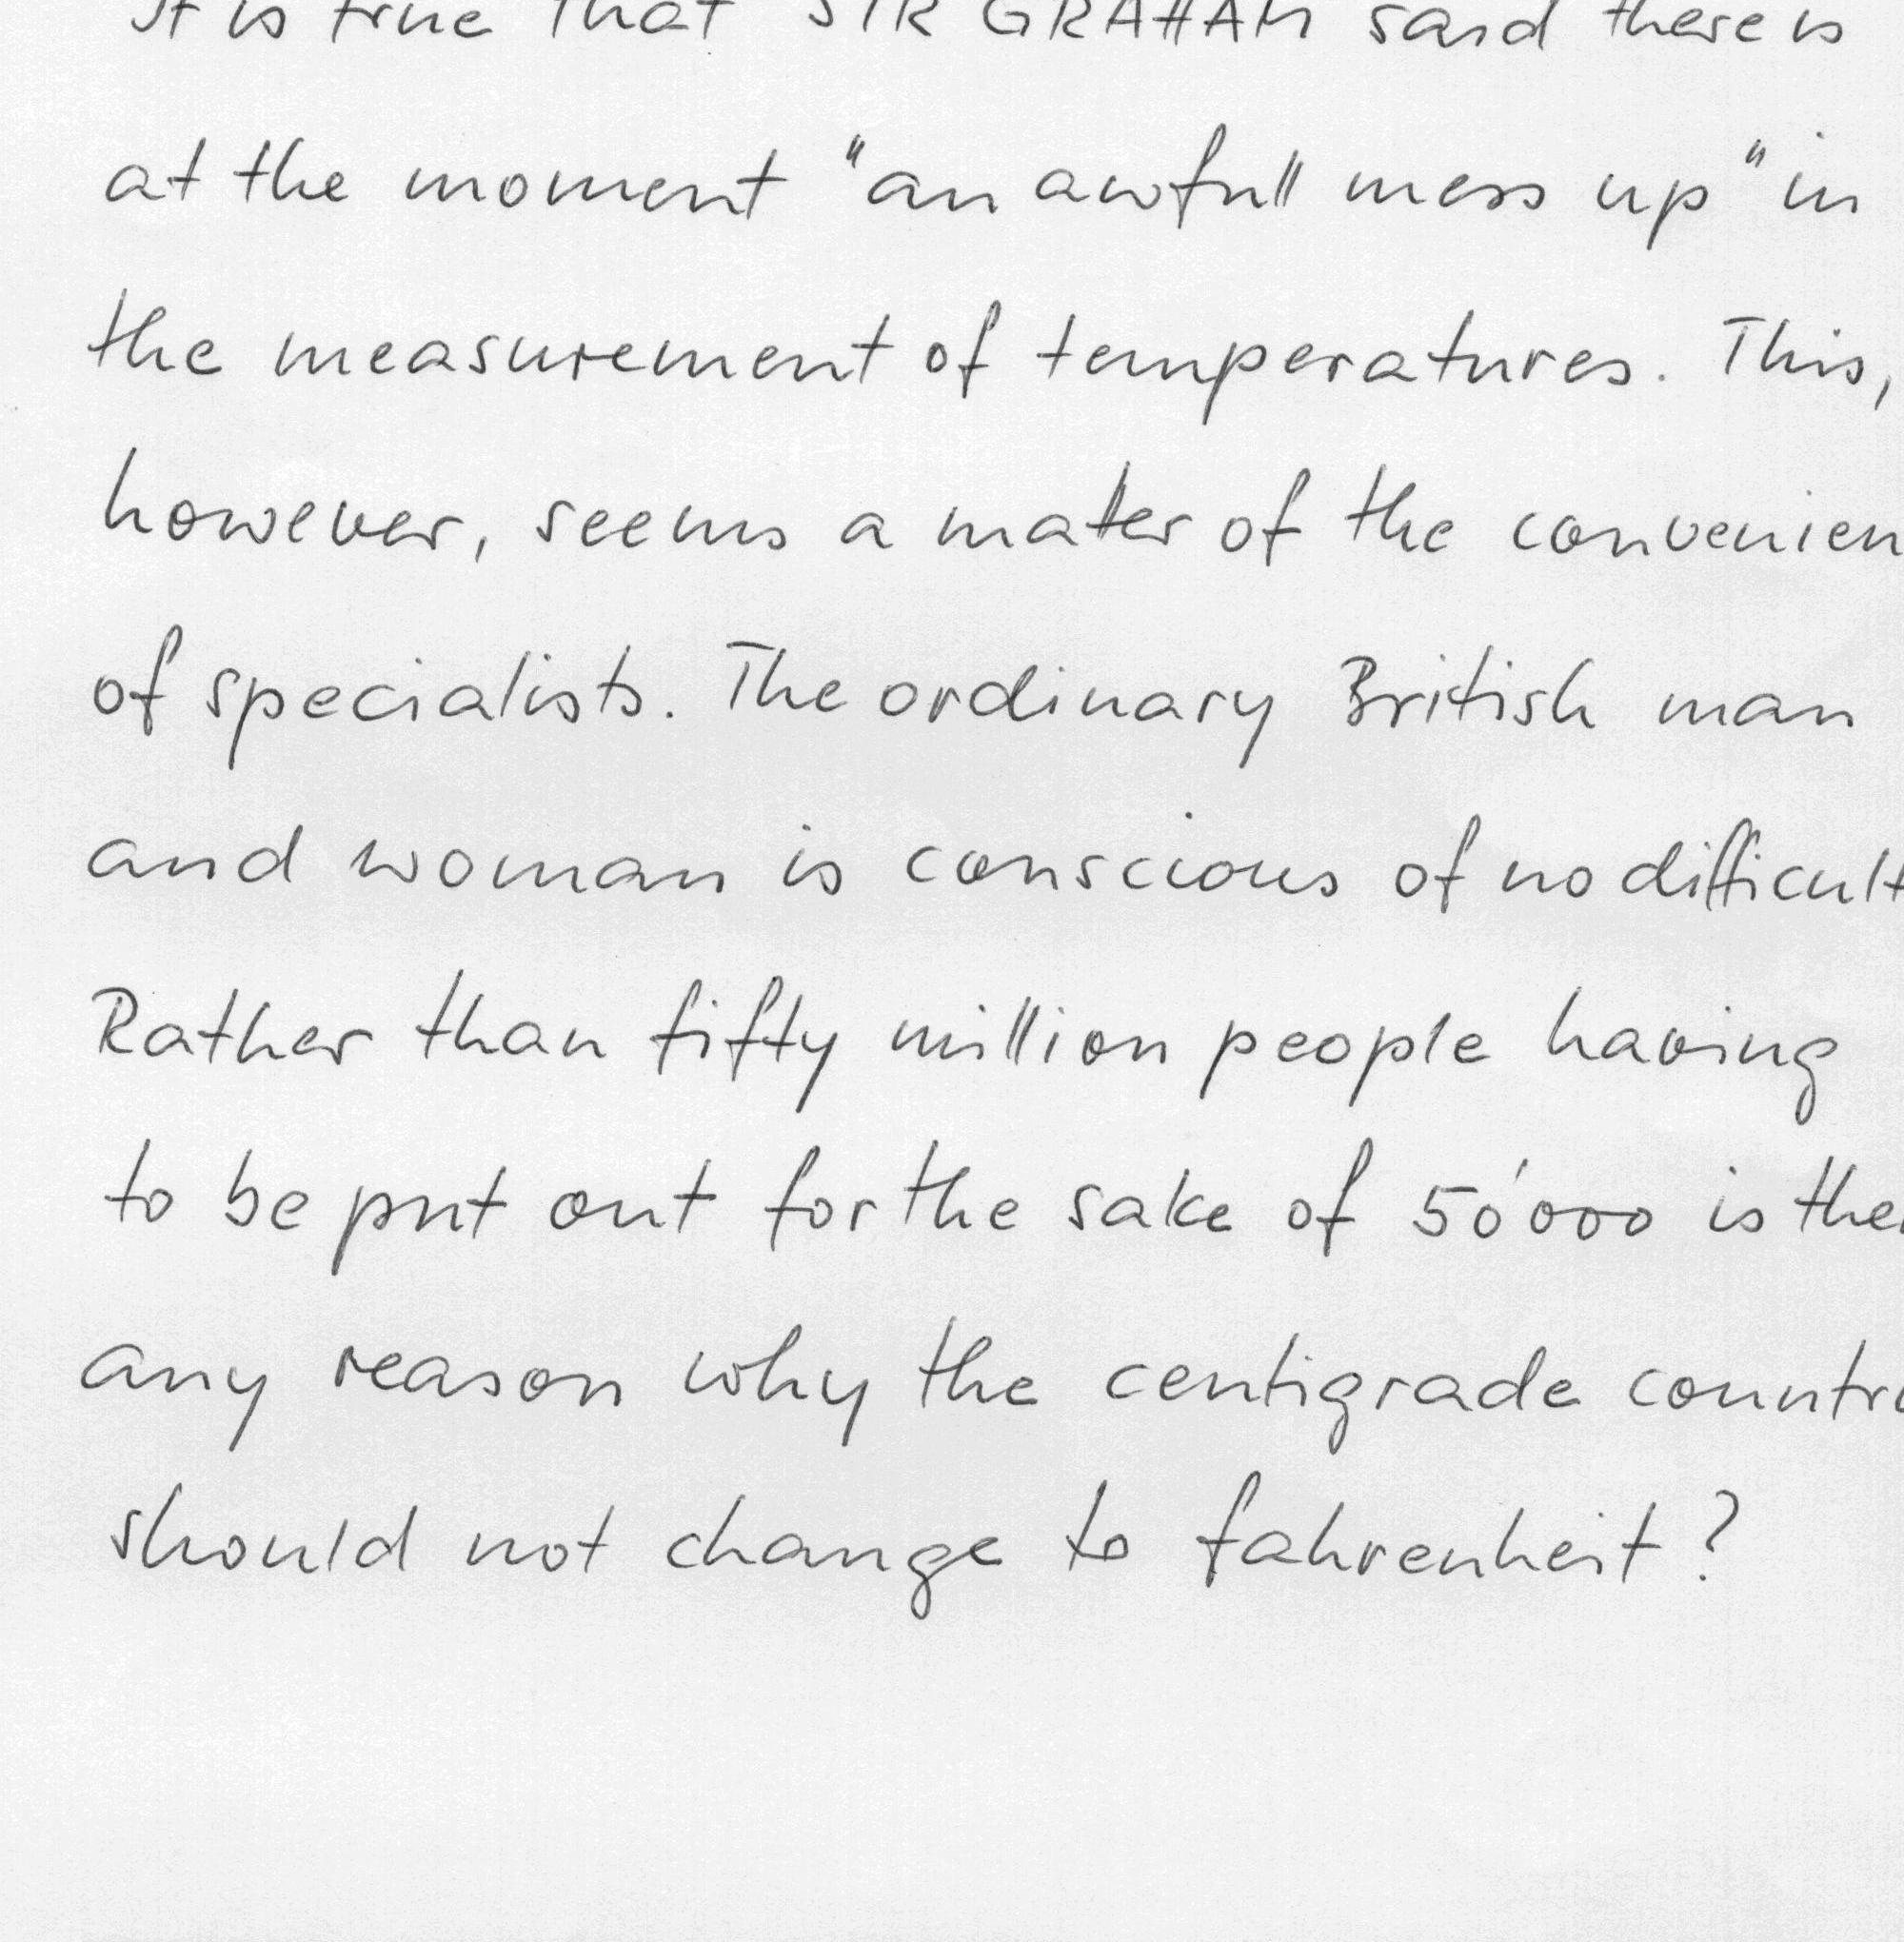 It is true that SIR GRAHAM said there is
at the moment "an awfull mess up" in
the measurement of temperatures. This,
however, seems a matter of the convenien
of specialists. The ordinary British man
and woman is conscious of no difficult
Rather than fifty million people having
to be put out for the sake of 50'000 is ther
any reason why the centigrade countri
should not change to fahrenheit?